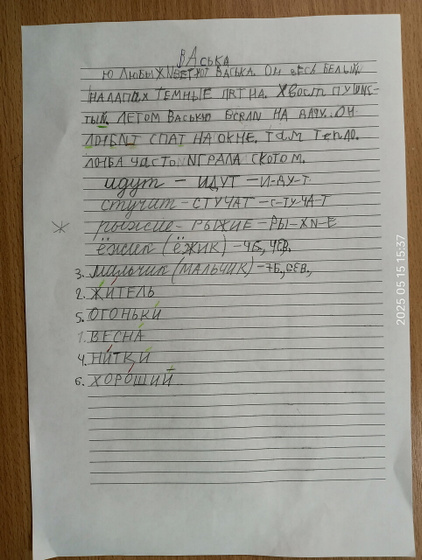 ВАСЬКА
Ю ЛЮБЫ ЖИВЕТ КОТ ВАСЬКА. ОН ВЕСЬ БЕЛЫЙ.
НА ЛАПАХ ТЕМНЫЕ ПЯТНА. ХВОСТ ПУШИС-
ТЫЙ. ЛЕТОМ ВАСЬКУ ВЗЯЛИ НА ДАЧУ. ОН
СПАТ НА ОКНЕ. ТАМ ТЕПЛО.
ЧАСТО ИГРАЛА С КОТОМ.
идут – ИДУТ – И-ДУ-Т
стучат – СТУЧАТ – С-ТУ-ЧА-Т
* рыжие – РЫЖИЕ – РЫ-ЖИ-Е
ёжик (ЁЖИК) – 4Б., 4ЗВ.
3. мальчик (МАЛЬЧИК) – 7Б., 6ЗВ.,
2. ЖИТЕЛЬ
5. ОГОНЬКИ
1. ВЕСНА
4. НИТКИ
6. ХОРОШИЙ
2025 05 15 15:37